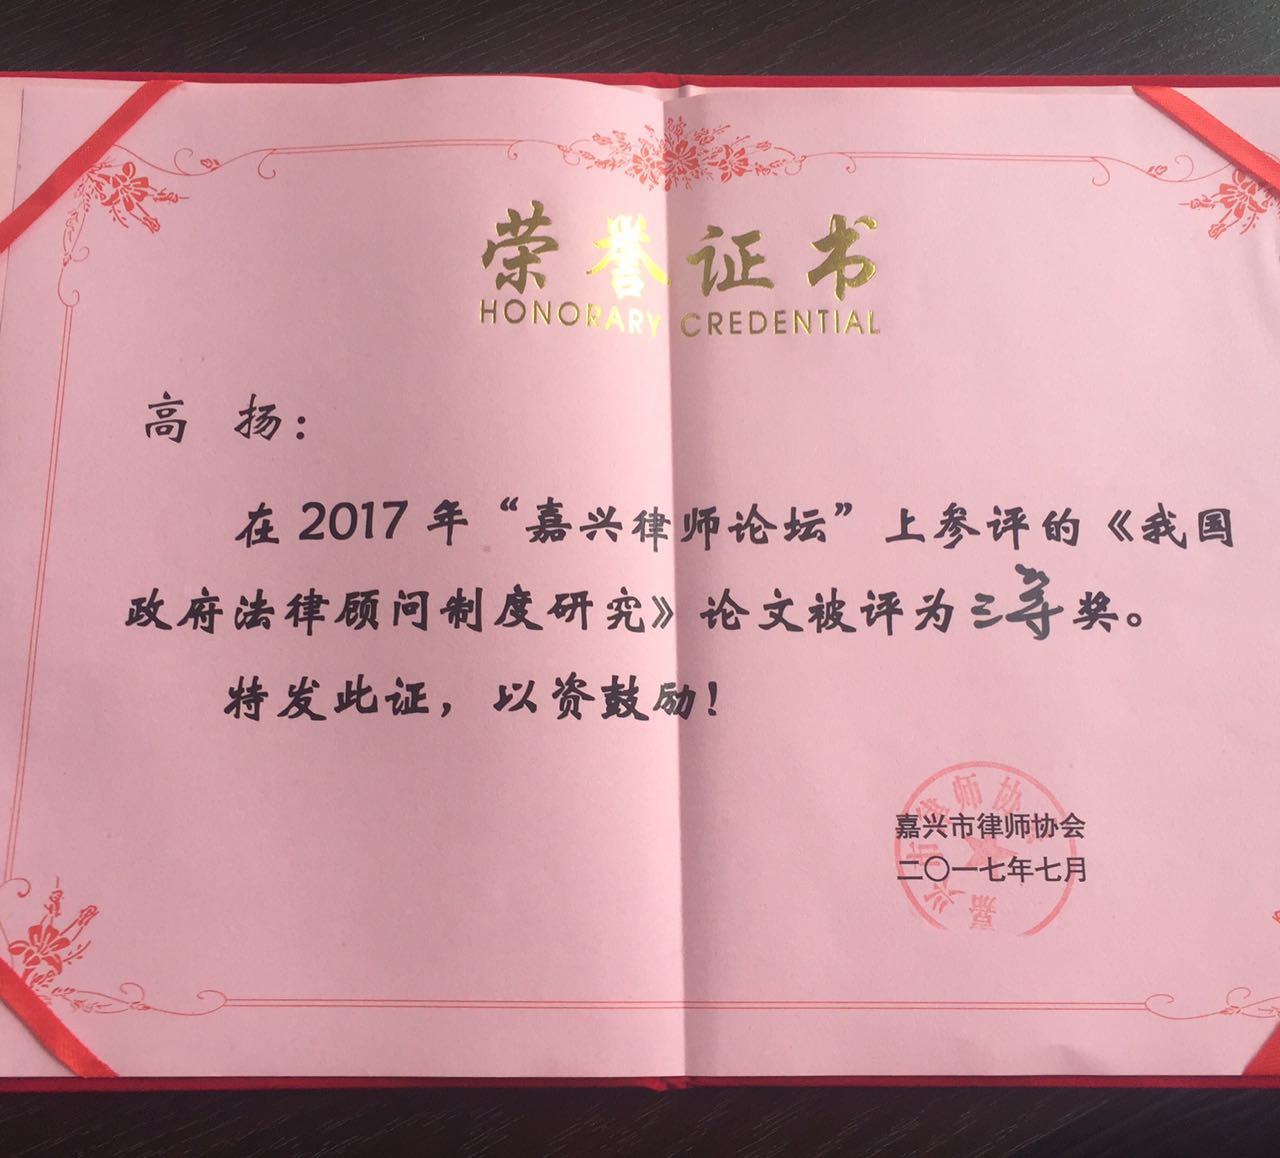 荣誉证书
HONORARY CREDENTIAL
高 扬：
在 2017 年“嘉兴律师论坛”上参评的《我国
政府法律顾问制度研究》论文被评为三等奖。
特发此证，以资鼓励！
嘉兴市律师协会
二〇一七年七月
嘉兴市律师协会